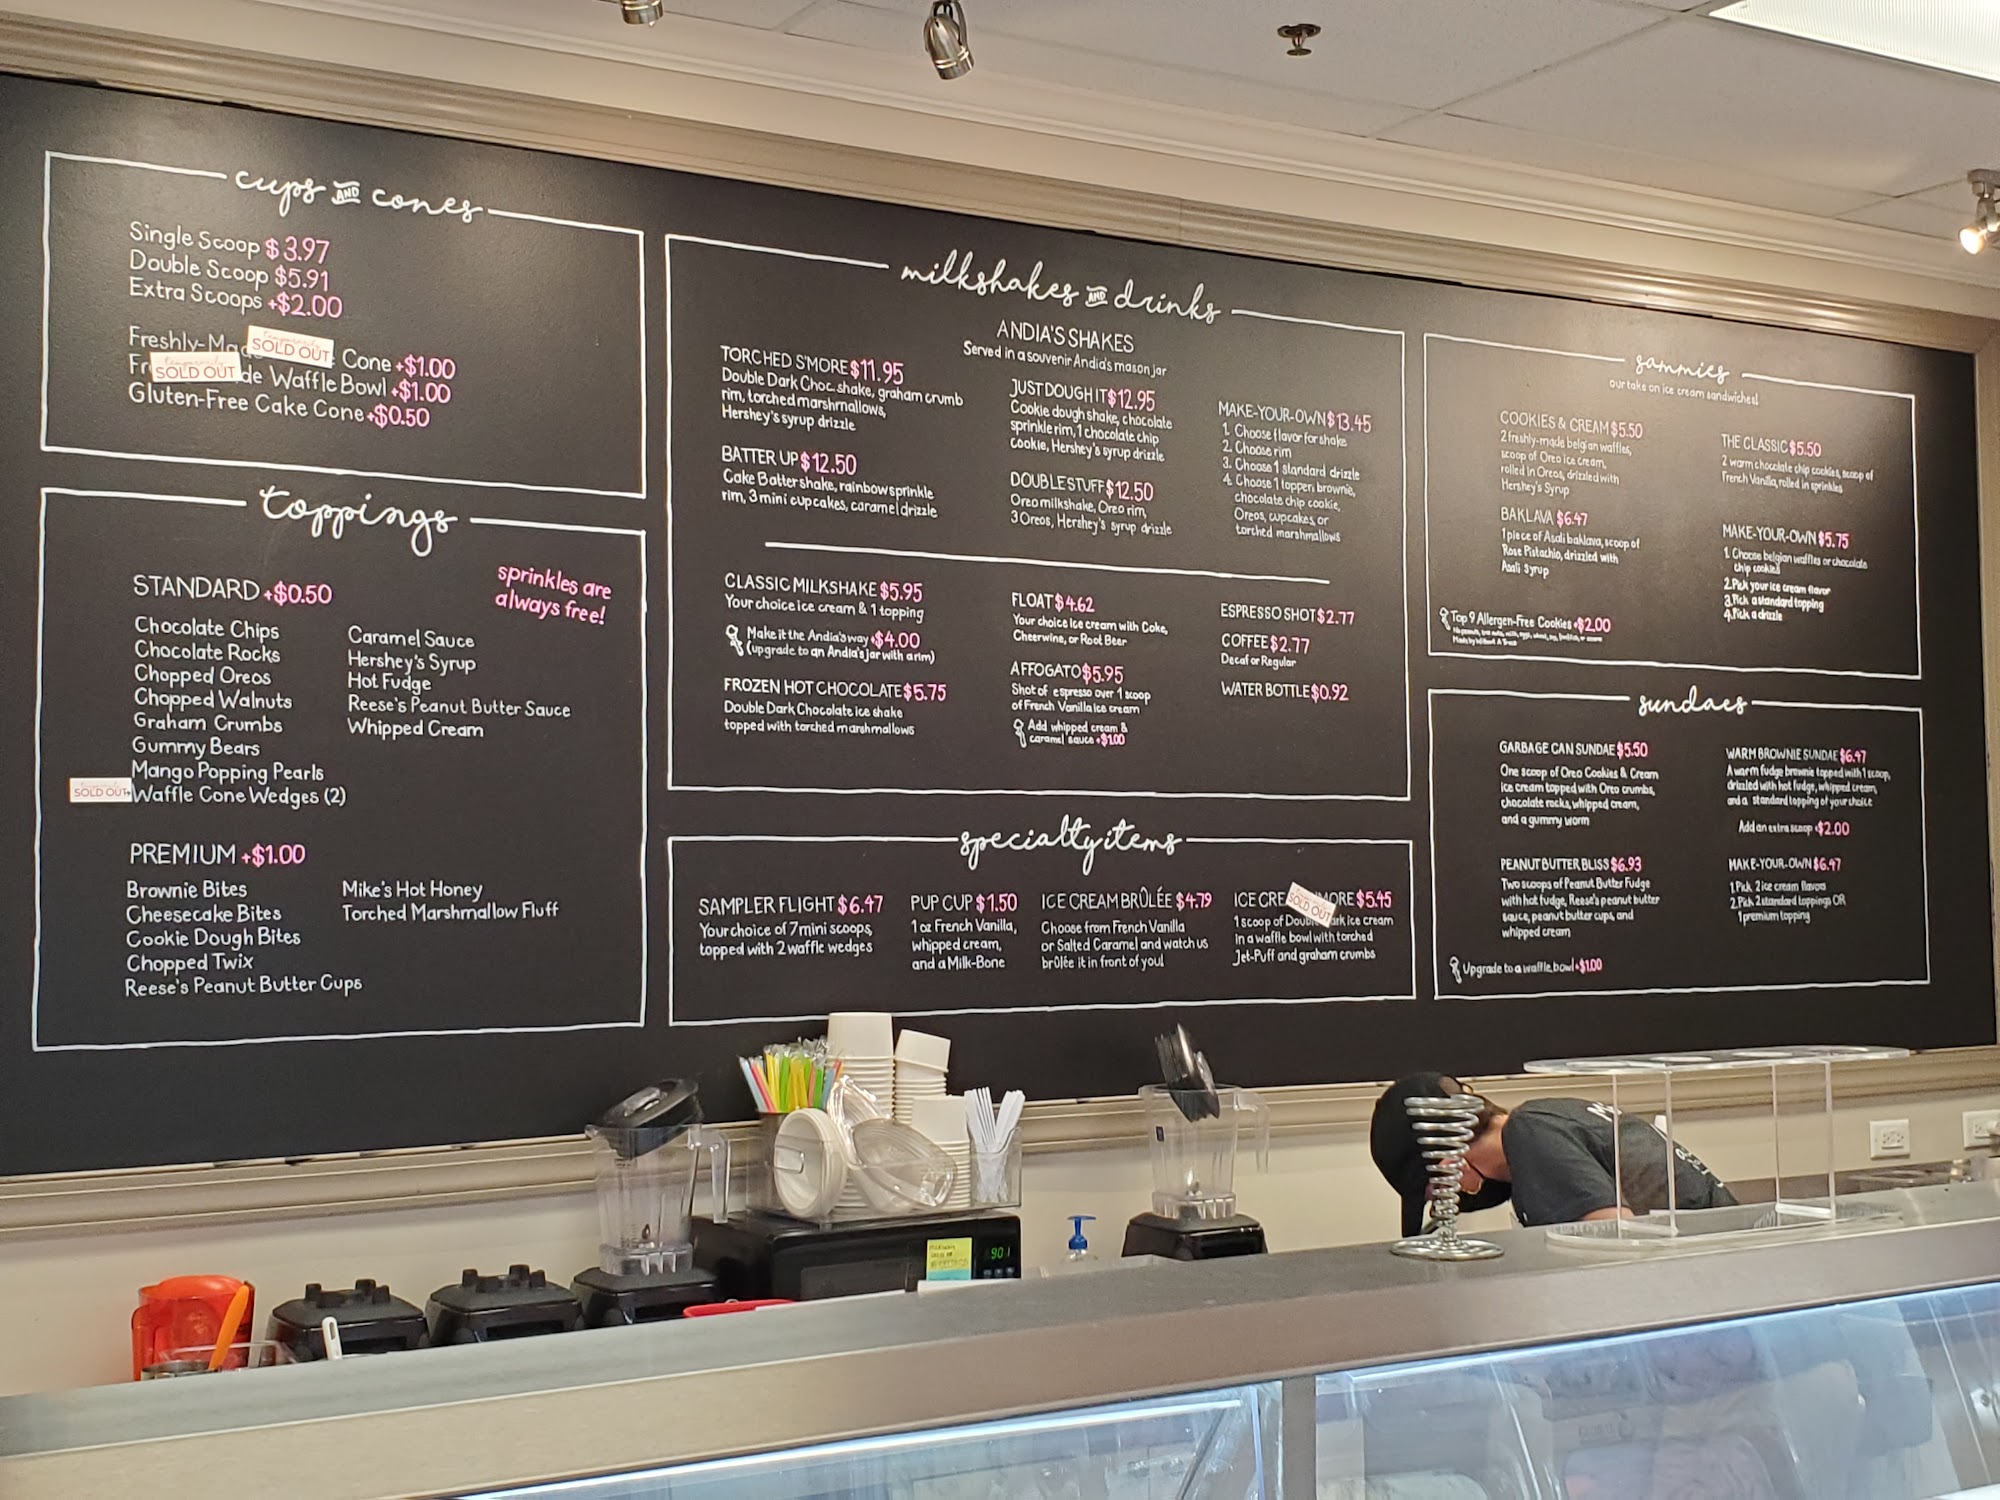 cups AND cones
Single Scoop $3.97
Double Scoop $5.91
Extra Scoops +$2.00
Freshly-Mad SOLD OUT Cone +$1.00
Fr SOLD OUT de Waffle Bowl +$1.00
Gluten-Free Cake Cone +$0.50
toppings
STANDARD +$0.50
sprinkles are
always free!
Chocolate Chips
Chocolate Rocks
Chopped Oreos
Chopped Walnuts
Graham Crumbs
Gummy Bears
Mango Popping Pearls
SOLD OUT Waffle Cone Wedges (2)
Caramel Sauce
Hershey's Syrup
Hot Fudge
Reese's Peanut Butter Sauce
Whipped Cream
PREMIUM +$1.00
Brownie Bites
Cheesecake Bites
Cookie Dough Bites
Chopped Twix
Reese's Peanut Butter Cups
Mike's Hot Honey
Torched Marshmallow Fluff
milkshakes AND drinks
ANDIA'S SHAKES
Served in a souvenir Andia's mason jar
TORCHED S'MORE $11.95
Double Dark Choc. shake, graham crumb
rim, torched marshmallows,
Hershey's syrup drizzle
BATTER UP $12.50
Cake Batter shake, rainbow sprinkle
rim, 3 mini cupcakes, caramel drizzle
JUST DOUGH IT $12.95
Cookie dough shake, chocolate
sprinkle rim, 1 chocolate chip
cookie, Hershey's syrup drizzle
DOUBLE STUFF $12.50
Oreo milkshake, Oreo rim,
3 Oreos, Hershey's syrup drizzle
MAKE-YOUR-OWN $13.45
1. Choose flavor for shake
2. Choose rim
3. Choose 1 standard drizzle
4. Choose 1 topper: brownie,
chocolate chip cookie,
Oreos, cupcakes, or
torched marshmallows
CLASSIC MILKSHAKE $5.95
Your choice ice cream & 1 topping
Make it the Andia's way +$4.00
(upgrade to an Andia's jar with a rim)
FROZEN HOT CHOCOLATE $5.75
Double Dark Chocolate ice shake
topped with torched marshmallows
FLOAT $4.62
Your choice ice cream with Coke,
Cheerwine, or Root Beer
AFFOGATO $5.95
Shot of espresso over 1 scoop
of French Vanilla ice cream
Add whipped cream &
caramel sauce +$1.00
ESPRESSO SHOT $2.77
COFFEE $2.77
Decaf or Regular
WATER BOTTLE $0.92
specialty items
SAMPLER FLIGHT $6.47
Your choice of 7 mini scoops,
topped with 2 waffle wedges
PUP CUP $1.50
1 oz French Vanilla,
whipped cream,
and a Milk-Bone
ICE CREAM BRÛLÉE $4.79
Choose from French Vanilla
or Salted Caramel and watch us
brûlée it in front of you!
ICE CREA SOLD OUT MORE $5.45
1 scoop of Double Dark ice cream
in a waffle bowl with torched
Jet-Puff and graham crumbs
sammies
our take on ice cream sandwiches!
COOKIES & CREAM $5.50
2 freshly-made belgian waffles,
scoop of Oreo ice cream,
rolled in Oreos, drizzled with
Hershey's Syrup
BAKLAVA $6.47
1 piece of Asali baklava, scoop of
Rose Pistachio, drizzled with
Asali Syrup
THE CLASSIC $5.50
2 warm chocolate chip cookies, scoop of
French Vanilla, rolled in sprinkles
MAKE-YOUR-OWN $5.75
1. Choose belgian waffles or chocolate
chip cookies
2. Pick your ice cream flavor
3. Pick a standard topping
4. Pick a drizzle
Top 9 Allergen-Free Cookies +$2.00
sundaes
GARBAGE CAN SUNDAE $5.50
One scoop of Oreo Cookies & Cream
ice cream topped with Oreo crumbs,
chocolate rocks, whipped cream,
and a gummy worm
PEANUT BUTTER BLISS $6.93
Two scoops of Peanut Butter Fudge
with hot fudge, Reese's peanut butter
sauce, peanut butter cups, and
whipped cream
WARM BROWNIE SUNDAE $6.47
A warm fudge brownie topped with 1 scoop,
drizzled with hot fudge, whipped cream,
and a standard topping of your choice
Add an extra scoop +$2.00
MAKE-YOUR-OWN $6.47
1. Pick 2 ice cream flavors
2. Pick 2 standard toppings OR
1 premium topping
Upgrade to a waffle bowl +$1.00
901